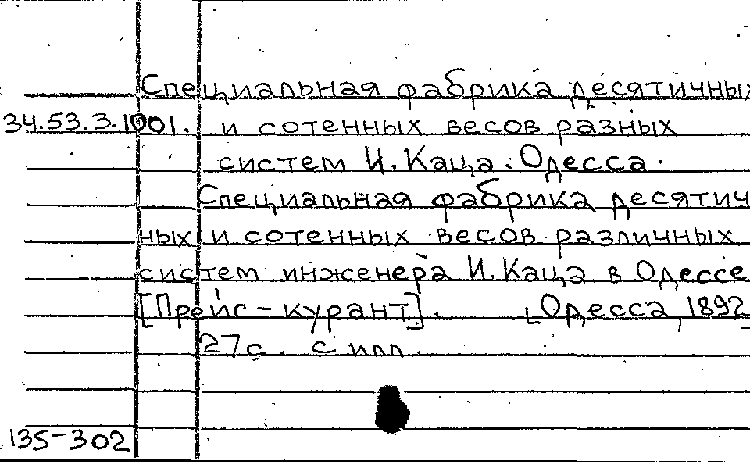 Специальная фабрика десятичных
34.53.3.1001. и сотенных весов разных
систем И. Каца. Одесса.
Специальная фабрика десятич
ных и сотенных весов различных
систем инженера И. Каца в Одессе
[Прейс-курант]. [Одесса, 1892
27с. с илл.
135-302